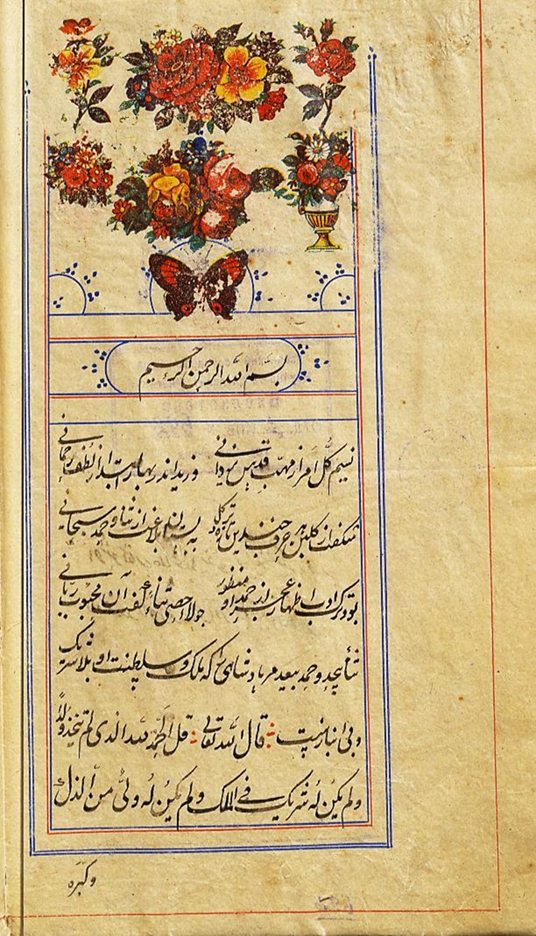 بسم الله الرحمن الرحیم
نسیم گل امر از مهب قدس یزدانی وزید اندر بهار ابتدا از لطف رحمانی
شکفت از گلبن هر حرف چندین تازه و تر گل به بستان بلاغت از ثنا و حمد سبحانی
بود ترک ادب اظهار عجز از حمد او منظور چو لا احصی ثناء گفت آن محبوب ربانی
ثنای بیحد و حمد بیعد مر پادشاهی را که ملک و سلطنت او بلا شریک
و بی انبازیست قال الله تعالی قل الحمد لله الذی لم یتخذ ولداً
ولم یکن له شریک فی الملک ولم یکن له ولی من الذل
وکبره